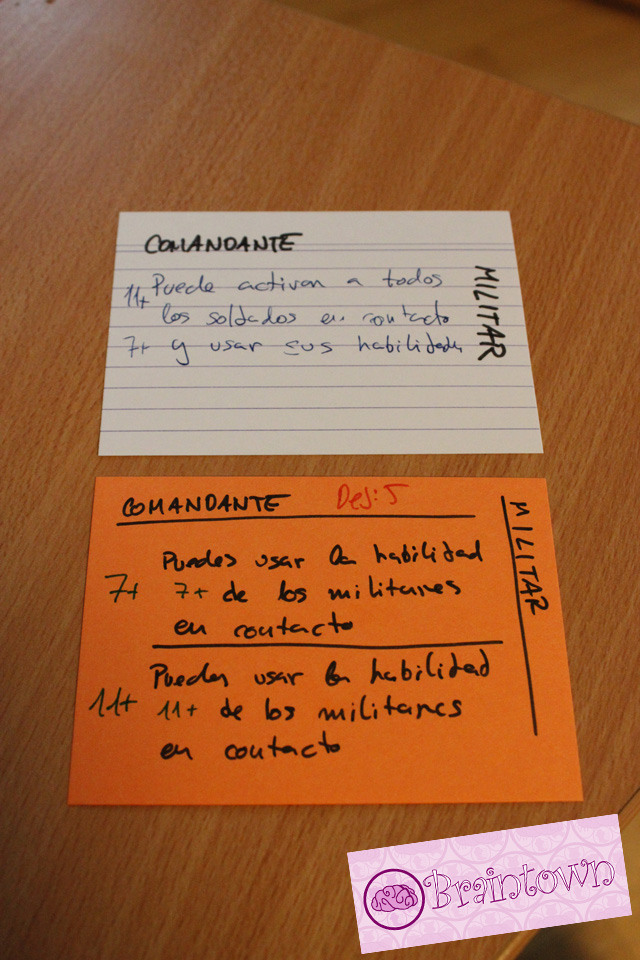 COMANDANTE
MILITAR
11+ Puede activar a todos
los soldados en contacto
7+ y usar sus habilidades
COMANDANTE Des: 5
MILITAR
Puedes usar la habilidad
7+ 7+ de los militares
en contacto
Puedes usar la habilidad
11+ 11+ de los militares
en contacto
Braintown